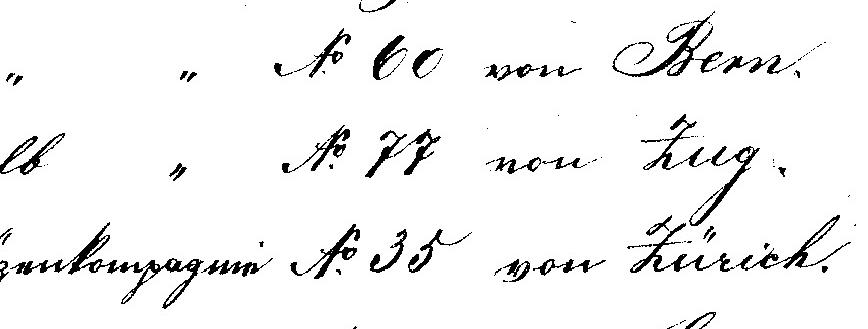 " " No. 60 von Bern.
lb " No. 77 von Zug.
zenkompagnie No. 35 von Zürich.